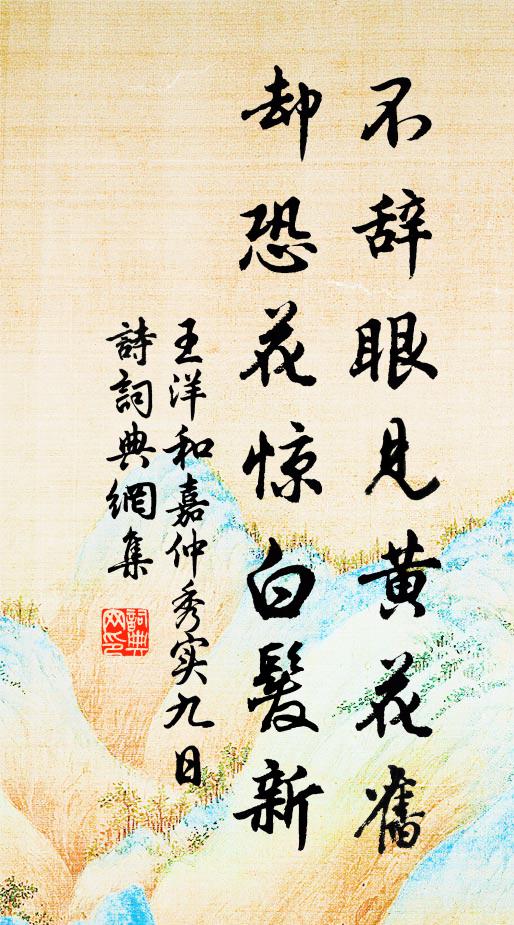 不辞眼见黄花舊
却恐花惊白髮新
王洋和嘉仲秀实九日
詩詞典網集
詞典网印